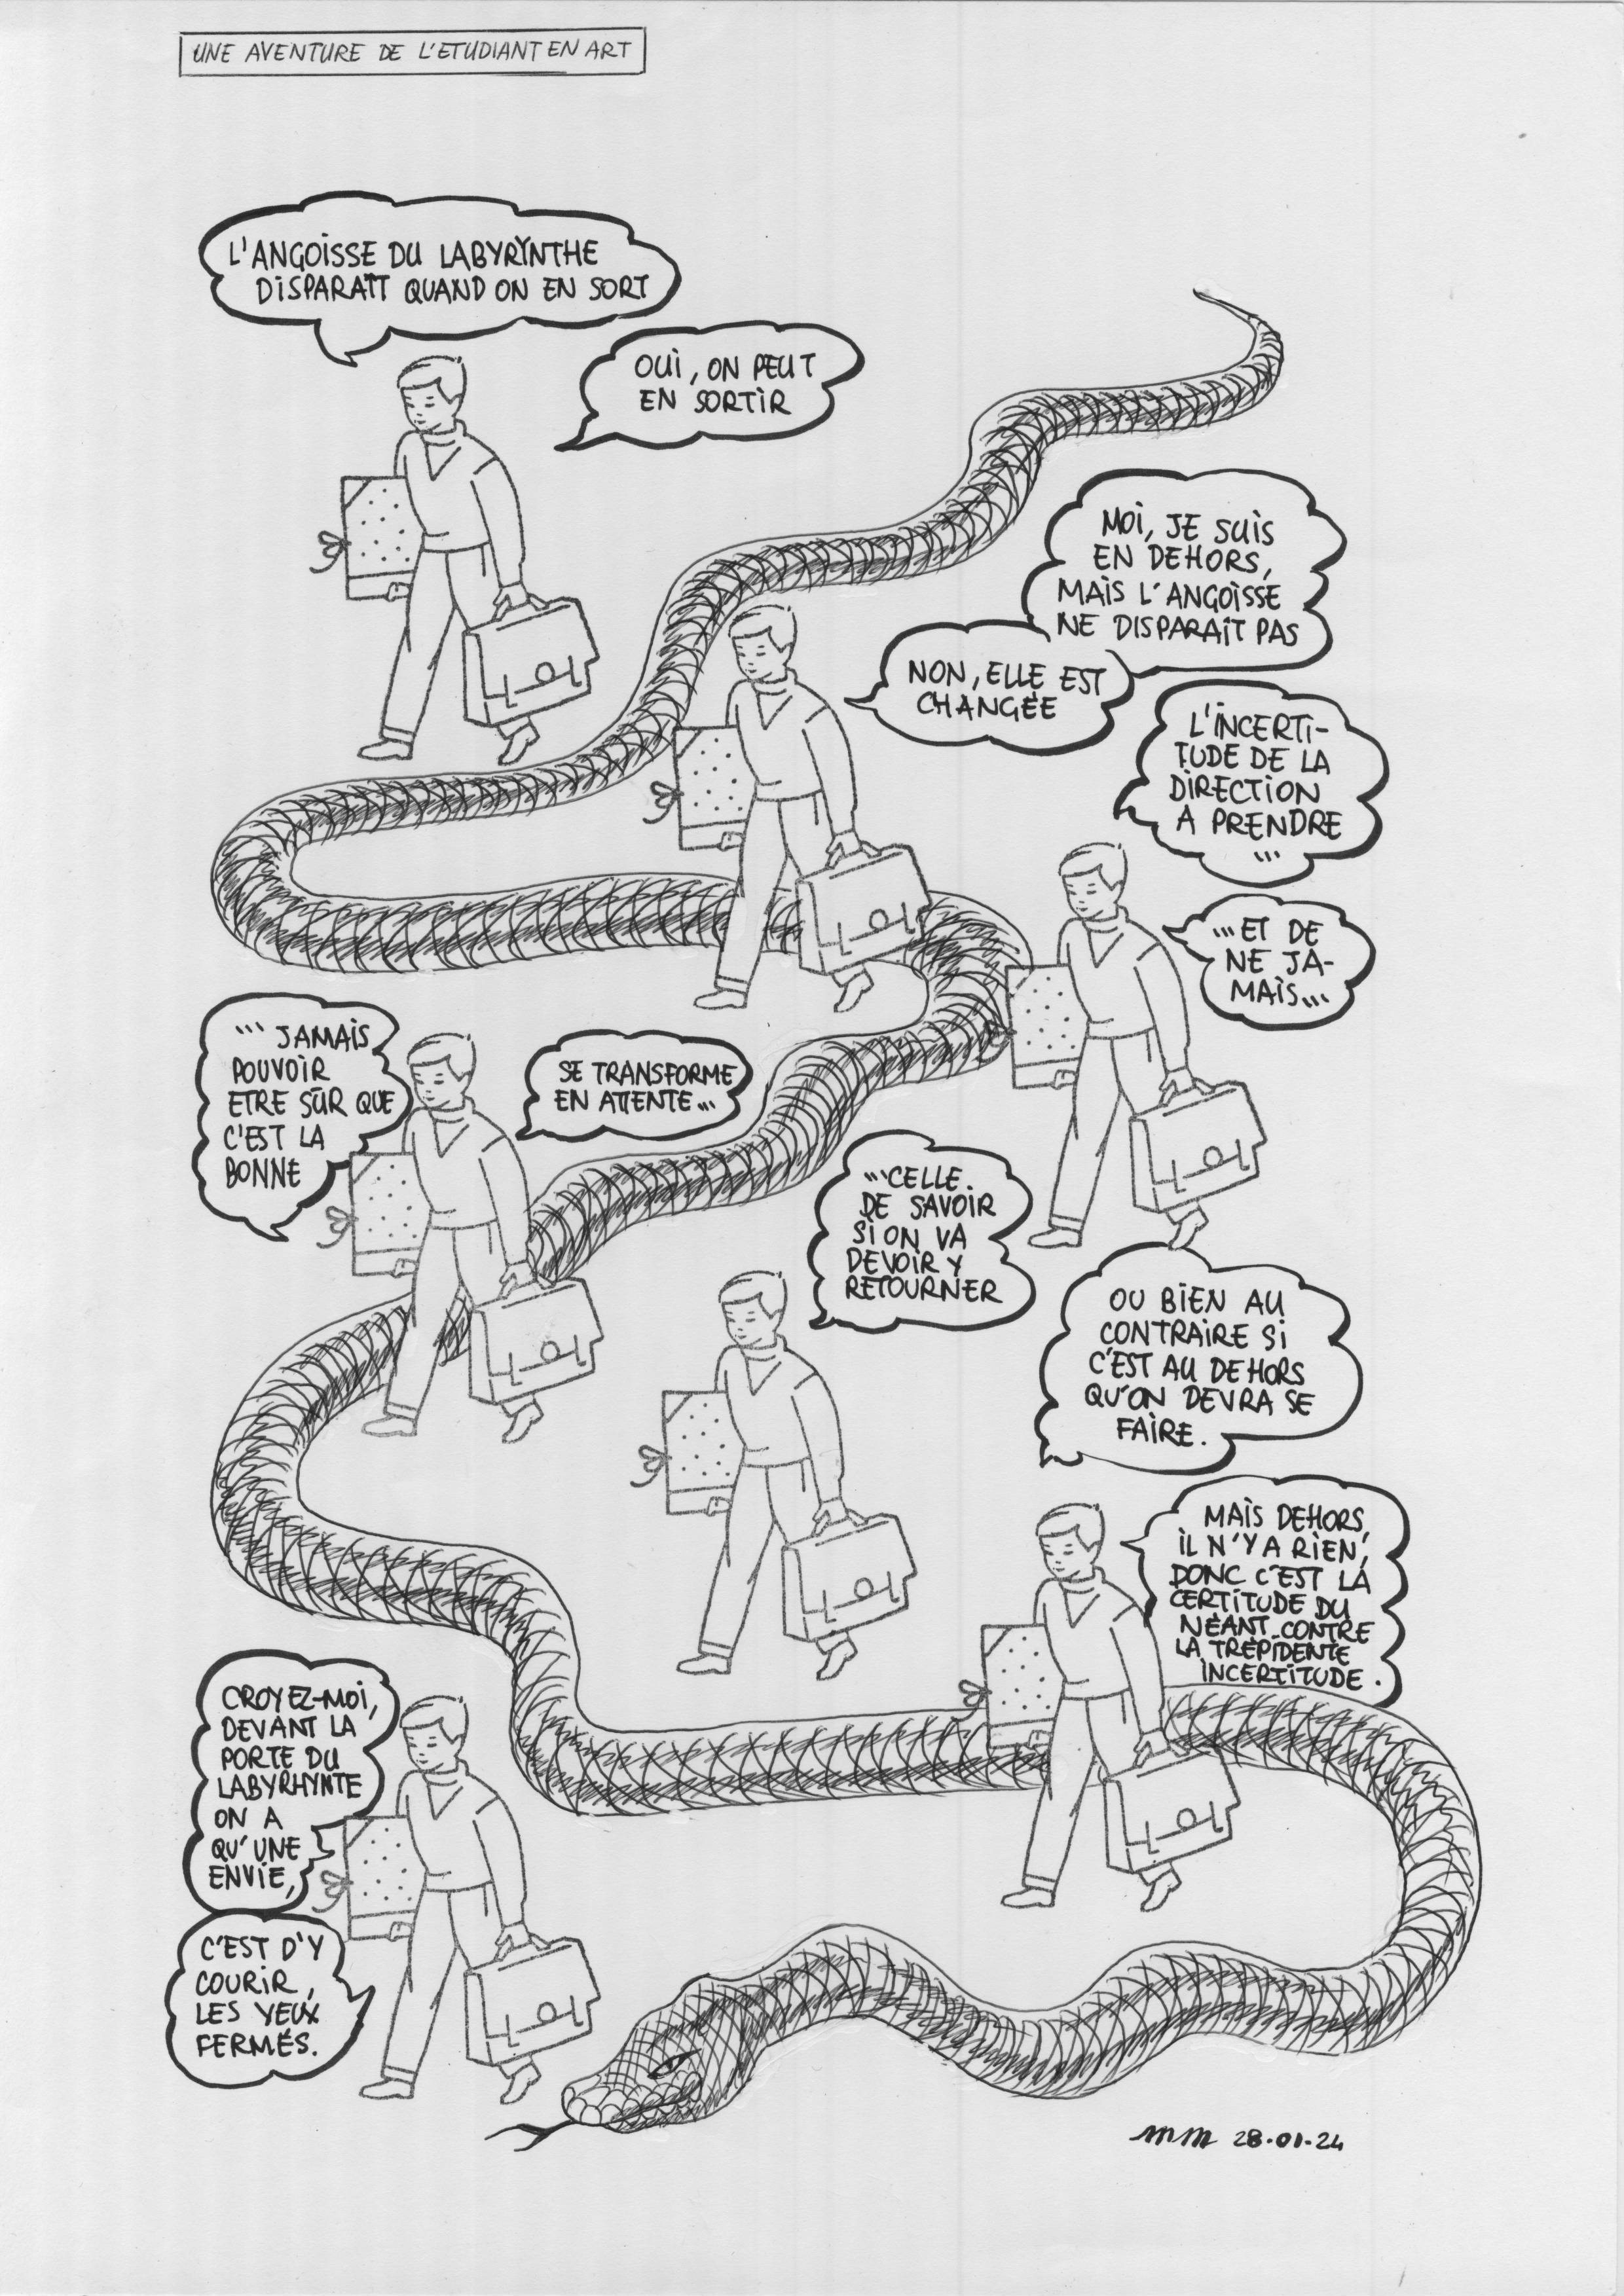 UNE AVENTURE DE L'ETUDIANT EN ART
L'ANGOISSE DU LABYRINTHE
DISPARAÎT QUAND ON EN SORT
OUI, ON PEUT
EN SORTIR
MOI, JE SUIS
EN DEHORS,
MAIS L'ANGOISSE
NE DISPARAIT PAS
NON, ELLE EST
CHANGÉE
L'INCERTI-
TUDE DE LA
DIRECTION
A PRENDRE
...
...ET DE
NE JA-
MAIS...
...JAMAIS
POUVOIR
ETRE SÛR QUE
C'EST LA
BONNE
SE TRANSFORME
EN ATTENTE...
...CELLE
DE SAVOIR
SI ON VA
DEVOIR Y
RETOURNER
OU BIEN AU
CONTRAIRE SI
C'EST AU DEHORS
QU'ON DEVRA SE
FAIRE.
MAIS DEHORS,
IL N'Y A RIEN,
DONC C'EST LA
CERTITUDE DU
NÉANT CONTRE
LA TRÉPIDENTE
INCERTITUDE.
CROYEZ-MOI,
DEVANT LA
PORTE DU
LABYRHYNTE
ON A
QU'UNE
ENVIE,
C'EST D'Y
COURIR,
LES YEUX
FERMÉS.
mm 28.01.24